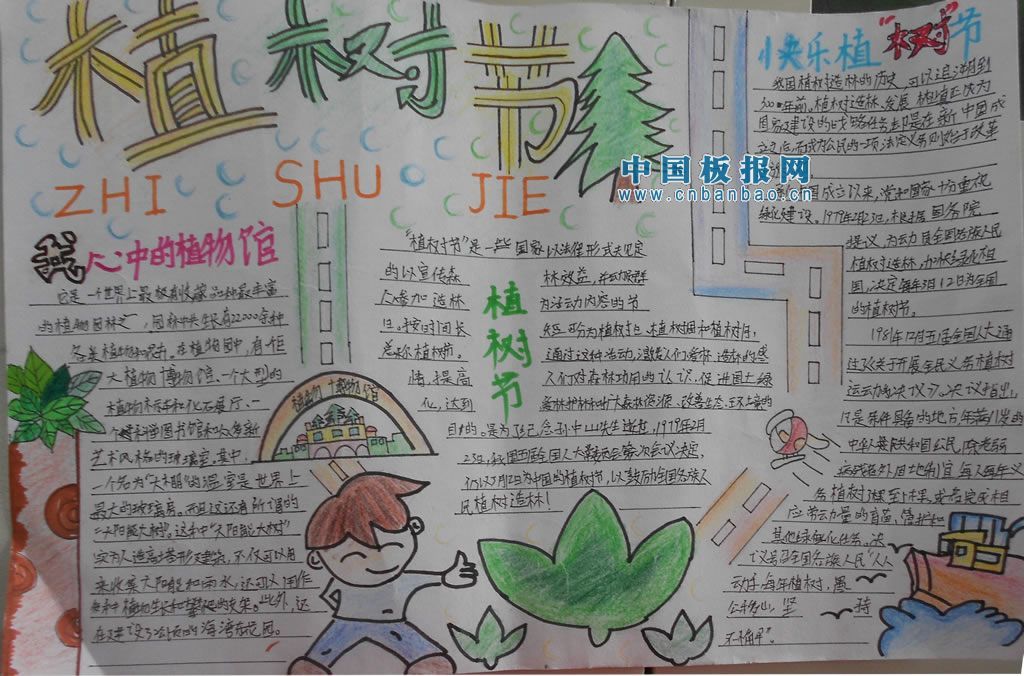 植树节
ZHI SHU JIE
中国板报网
www.cnbanbao.cn
我心中的植物馆
这是一个世界上最收藏品种最丰富
的植物园林之一,园林中共生长有22000余种
各类植物和花卉。在植物园中,有一作
大植物博物馆、一个大型的
植物标本和化石展厅、一
个科学图书馆和众多新
艺术风格的玻璃室。其中,
一个名为"天棚"的温室是世界上
最大的玻璃房,而且这还有所谓的
"太阳能大树"。这种"太阳能大树"
实为人造高塔形建筑,不仅可以用
来收集太阳能和雨水,还可以用作
各种植物生长和攀爬的支架。此外,这
在建设了公顷的海湾花园。
植物博物馆
植树节
"植树节"是一些国家以法律形式规定
的以宣传森林效益,并动员群
众参加造林为活动内容的节
日。按时间长短可分为植树日、植树周和植树月,
总称植树节。通过这种活动,激发人们爱林、造林的感
情、提高人们对森林功用的认识,促进国土绿
化,达到爱林护林和扩大森林资源、改善生态环境的
目的。是为了纪念孙中山先生逝世,1979年2月
23日,我国五届全国人大常委会第六次会议决定,
仍以3月12日为中国的植树节,以鼓励全国各族人
民植树造林!
快乐植"树"节
我国植树造林的历史,可以追溯到
300年前。植树造林、发展林业正成为
国家建设的战略任务却是在新中国成
立之后,而成为公民的一项法定义务则始于改革
国成立以来,党和国家十分重视
绿化建设,1979年2月23日,根据国务院
提议,为动员全国各族人民
植树造林,加快绿化祖
国,决定每年3月12日为全国
的植树节。
1981年12月五届全国人大通
过了关于开展全民义务植树
运动的决议》。决议指出,
凡是条件具备的地方,年满11岁的
中华人民共和国公民,除老弱
病残外,因地制宜,每人每年义
务植树3棵至5棵,或者完成相
应劳动量的育苗、管护和
其他绿化任务。决
议号召全国各族人民"人人
动手,每年植树,愚
公移山,坚持
不懈"。